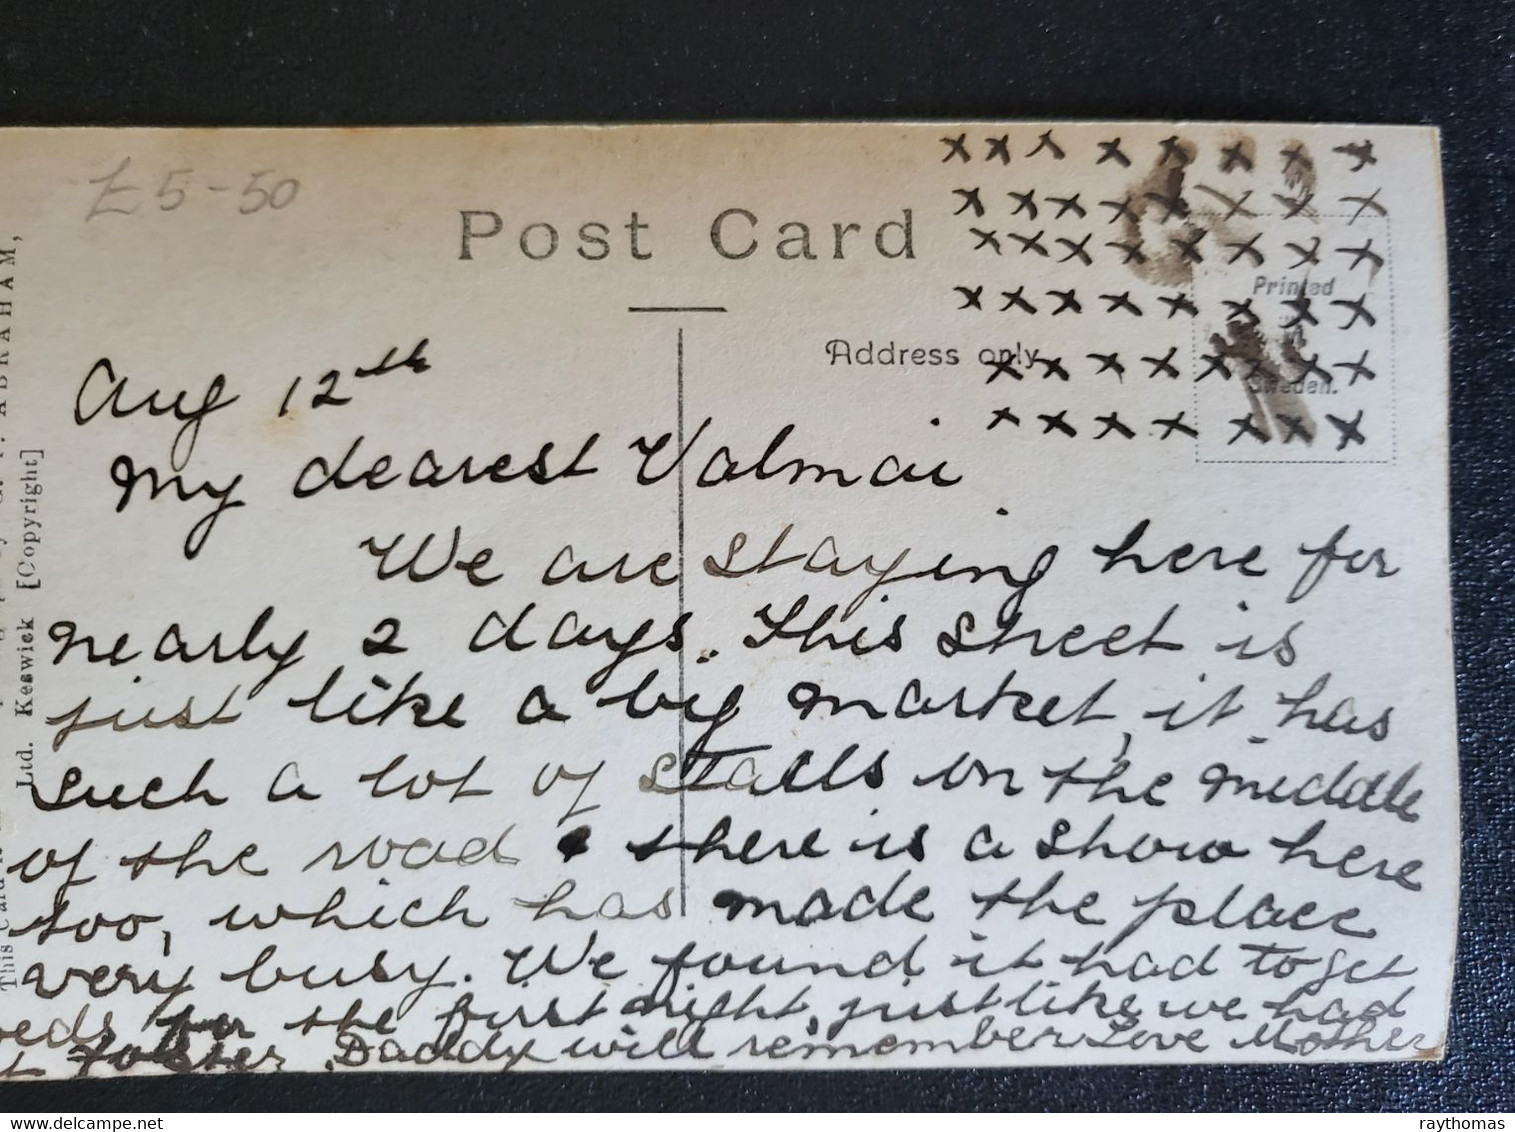 £5-50
Post Card
Address only
Printed
Sweden.
Aug 12th
My dearest Valmai
We are staying here for
nearly 2 days. This street is
just like a big market, it has
such a lot of stalls in the middle
of the road there is a show here
too, which has made the place
very busy. We found it hard to get
beds for the first night, just like we had
at Daddy will remember Love Mother
ABRAHAM,
Ltd. Keswick [Copyright]
This card
delcampe.net
raythomas